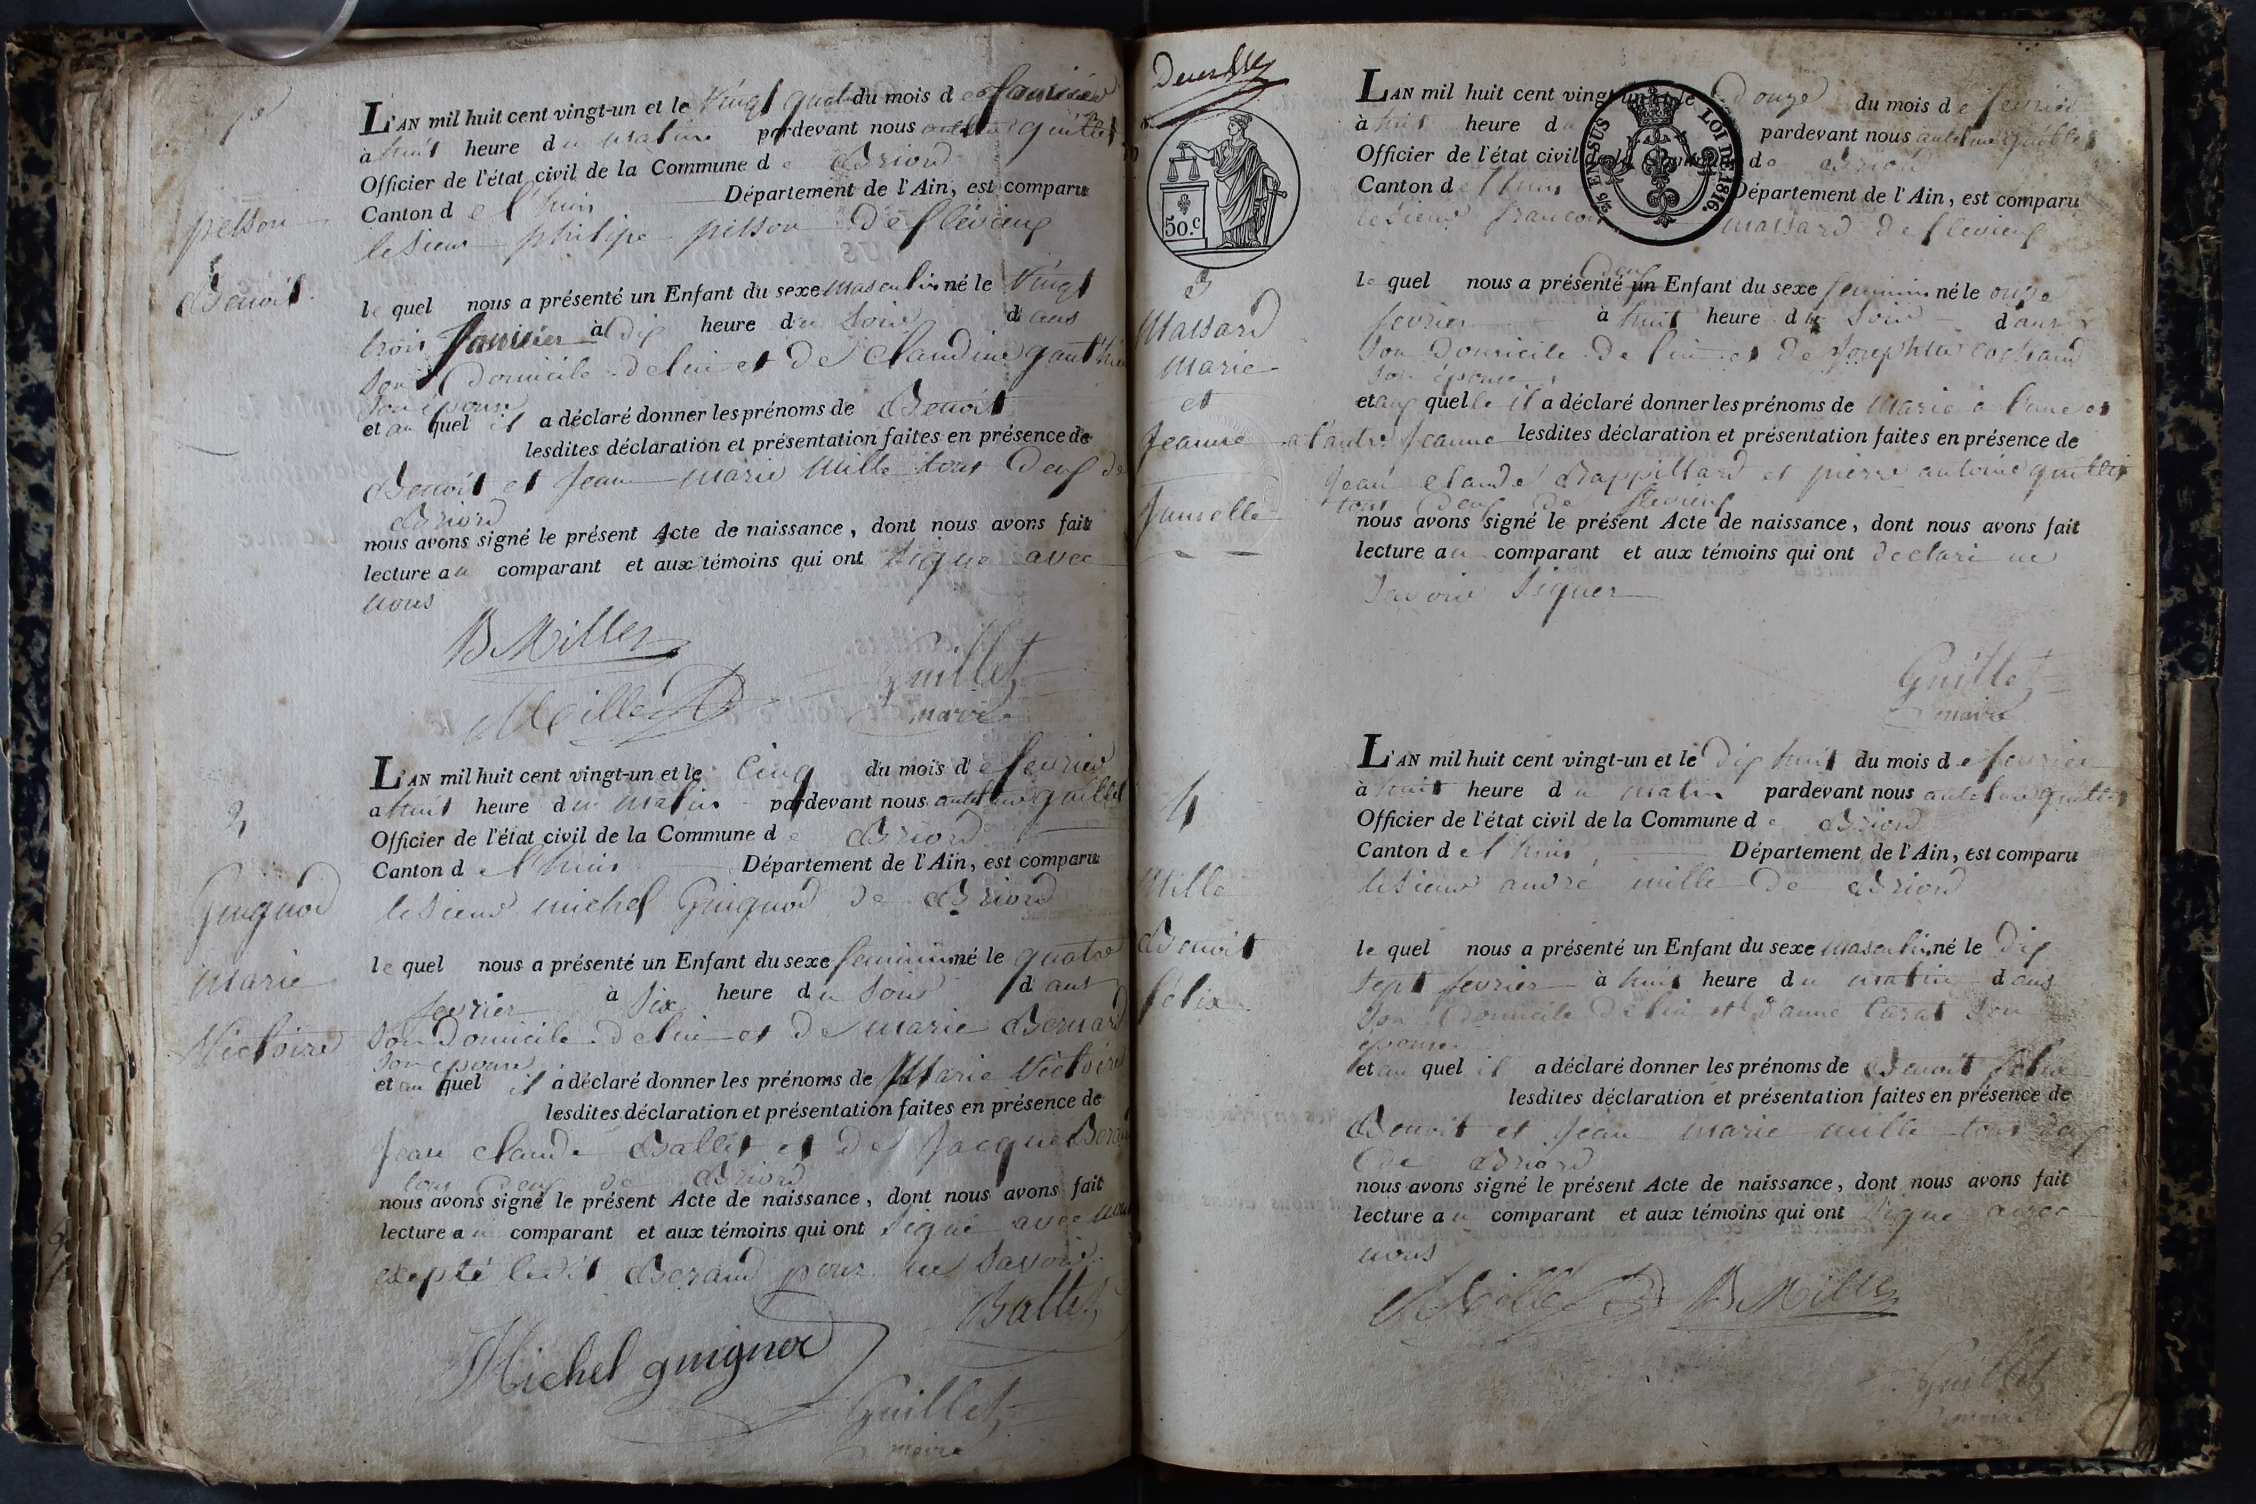 1er
pesson
Benoit
L'AN mil huit cent vingt-un et le vingt quatre du mois de janvier
à huit heure du matin pardevant nous anthelme guillet
Officier de l'état civil de la Commune de Briord
Canton de l'huis Département de l'Ain, est comparu
le sieur philipe pesson de flévieux
le quel nous a présenté un Enfant du sexe masculin né le vingt
trois janvier à dix heure du soir dans
son domicile de lui et de claudine gauthier
son épouse
et au quel il a déclaré donner les prénoms de Benoit
lesdites déclaration et présentation faites en présence de
Benoit et jean marie mille tous deux de
Briord
nous avons signé le présent Acte de naissance, dont nous avons fait
lecture au comparant et aux témoins qui ont signé avec
nous
B Mille
Mille
Guillet
maire
2
Guignod
marie
Victoire
L'AN mil huit cent vingt-un et le cinq du mois de fevrier
a huit heure du matin pardevant nous anthelme guillet
Officier de l'état civil de la Commune de Briord
Canton de l'huis Département de l'Ain, est comparu
le sieur michel Guignod de Briord
le quel nous a présenté un Enfant du sexe feminin né le quatre
fevrier à six heure du soir dans
son domicile de lui et de marie Bernard
son épouse
et au quel il a déclaré donner les prénoms de Marie Victoire
lesdites déclaration et présentation faites en présence de
jean claude Ballet et de jacque Beraud
tous deux de Briord
nous avons signé le présent Acte de naissance, dont nous avons fait
lecture au comparant et aux témoins qui ont signé avec nous
excepté ledit Beraud pour ne savoir
Ballet
Michel guignod
Guillet
maire
50.c
3
Massard
Marie
et
Jeanne
Jumelle
L'AN mil huit cent vingt-un et le douze du mois de fevrier
à huit heure du pardevant nous anthelme guillet
Officier de l'état civil de la Commune de Briord
Canton de l'huis Département de l'Ain, est comparu
le sieur francois massard de flevieux
5/5 EN SUS LOI DE 1816.
deux
le quel nous a présenté un Enfant du sexe feminin né le onze
fevrier à huit heure du soir dans
son domicile de lui et de josephte
son épouse
et aux quelle il a déclaré donner les prénoms de marie à l'une et
a l'autre jeanne lesdites déclaration et présentation faites en présence de
jean claude Bappillard et pierre antoine guillet
tous deux de flevieux
nous avons signé le présent Acte de naissance, dont nous avons fait
lecture au comparant et aux témoins qui ont declaré ne
savoir signer
Guillet
maire
4
Mille
Benoit
félix
L'AN mil huit cent vingt-un et le dix huit du mois de fevrier
à huit heure du matin pardevant nous anthelme guillet
Officier de l'état civil de la Commune de Briord
Canton de l'huis Département de l'Ain, est comparu
le sieur andré mille de Briord
le quel nous a présenté un Enfant du sexe masculin né le dix
sept fevrier à huit heure du matin dans
son domicile de lui et d'anne curat son
epouse
et au quel il a déclaré donner les prénoms de Benoit felix
lesdites déclaration et présentation faites en présence de
Benoit et jean marie mille tous deux
de Briord
nous avons signé le présent Acte de naissance, dont nous avons fait
lecture au comparant et aux témoins qui ont signé avec
nous
Mille B Mille
Guillet
maire